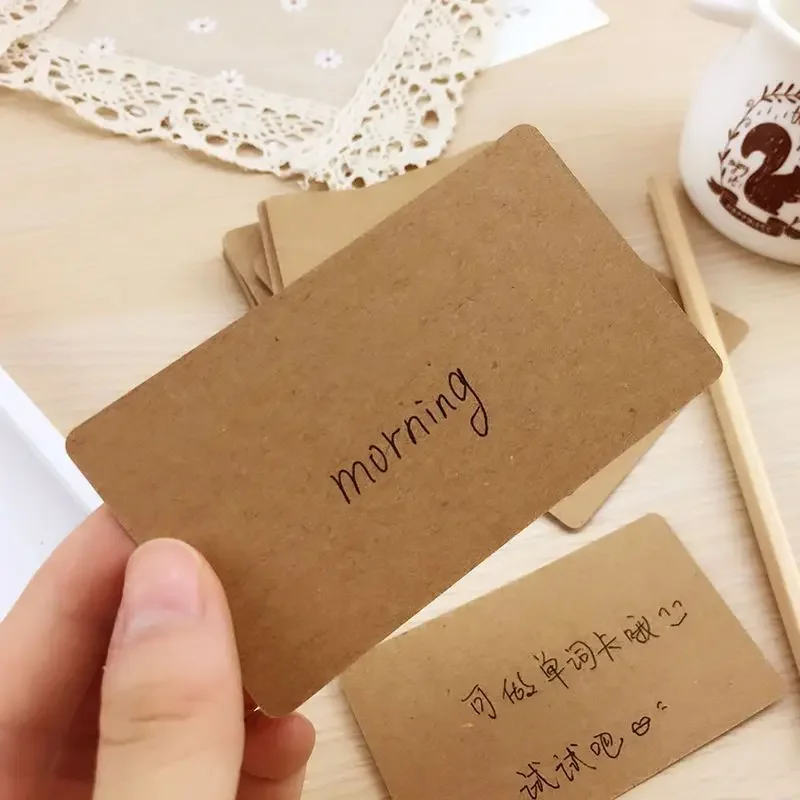 morning
可做单词卡哦
试试吧